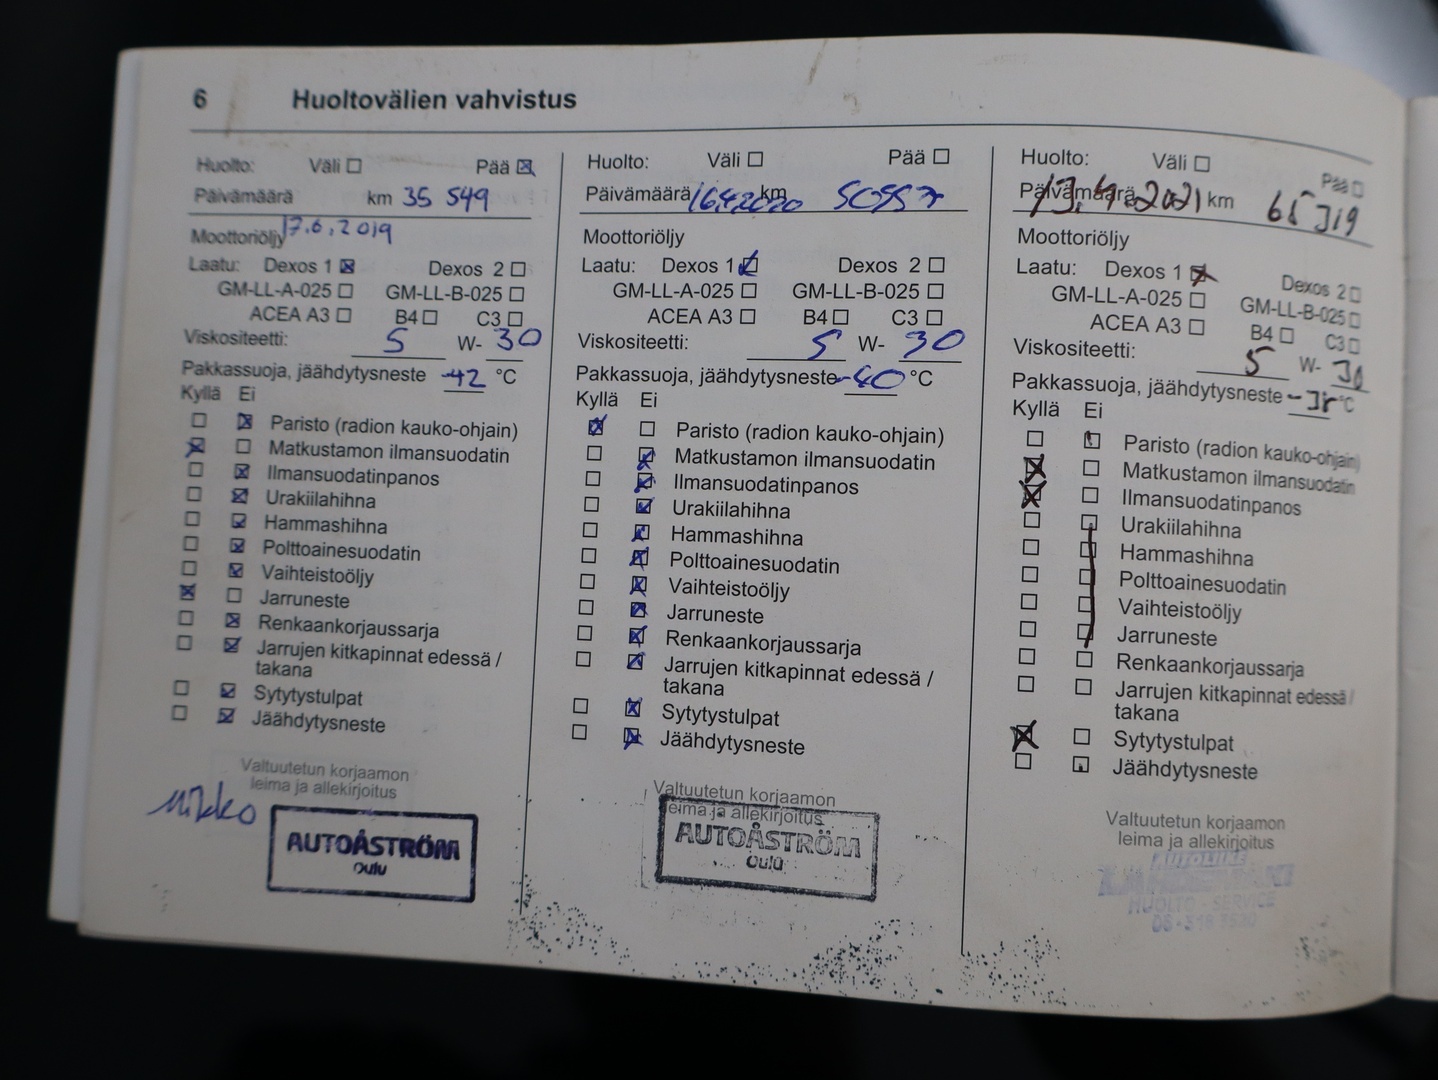 6 Huoltovälien vahvistus
Huolto: Väli Pää
Päivämäärä km 35 549
17.6.2019
Moottoriöljy
Laatu: Dexos 1 Dexos 2
GM-LL-A-025 GM-LL-B-025
ACEA A3 B4 C3
Viskositeetti: 5 W- 30
Pakkassuoja, jäähdytysneste -42 °C
Kyllä Ei
Paristo (radion kauko-ohjain)
Matkustamon ilmansuodatin
Ilmansuodatinpanos
Urakiilahihna
Hammashihna
Polttoainesuodatin
Vaihteistoöljy
Jarruneste
Renkaankorjaussarja
Jarrujen kitkapinnat edessä /
takana
Sytytystulpat
Jäähdytysneste
Valtuutetun korjaamon
leima ja allekirjoitus
Mikko
AUTOÅSTRÖM
Oulu
Huolto: Väli Pää
Päivämäärä 16.4.2020 km
Moottoriöljy
Laatu: Dexos 1 Dexos 2
GM-LL-A-025 GM-LL-B-025
ACEA A3 B4 C3
Viskositeetti: 5 W- 30
Pakkassuoja, jäähdytysneste -40 °C
Kyllä Ei
Paristo (radion kauko-ohjain)
Matkustamon ilmansuodatin
Ilmansuodatinpanos
Urakiilahihna
Hammashihna
Polttoainesuodatin
Vaihteistoöljy
Jarruneste
Renkaankorjaussarja
Jarrujen kitkapinnat edessä /
takana
Sytytystulpat
Jäähdytysneste
Valtuutetun korjaamon
leima ja allekirjoitus
AUTOÅSTRÖM
Oulu
Huolto: Väli Pää
Päivämäärä 13.4.2021 km
Moottoriöljy
Laatu: Dexos 1 Dexos 2
GM-LL-A-025 GM-LL-B-025
ACEA A3 B4 C3
Viskositeetti: 5 W- 30
Pakkassuoja, jäähdytysneste °C
Kyllä Ei
Paristo (radion kauko-ohjain)
Matkustamon ilmansuodatin
Ilmansuodatinpanos
Urakiilahihna
Hammashihna
Polttoainesuodatin
Vaihteistoöljy
Jarruneste
Renkaankorjaussarja
Jarrujen kitkapinnat edessä /
takana
Sytytystulpat
Jäähdytysneste
Valtuutetun korjaamon
leima ja allekirjoitus
AUTOLIIKE
HUOLTO - SERVICE